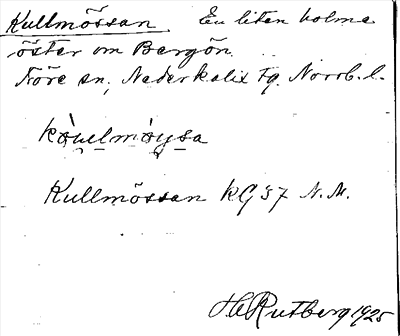 Kullmössan. En liten holme
öster om Bergön.
Töre sn, Nederkalix tg. Norrb. l.
Kullmössan KG 37 N.M.
H Rutberg 1925